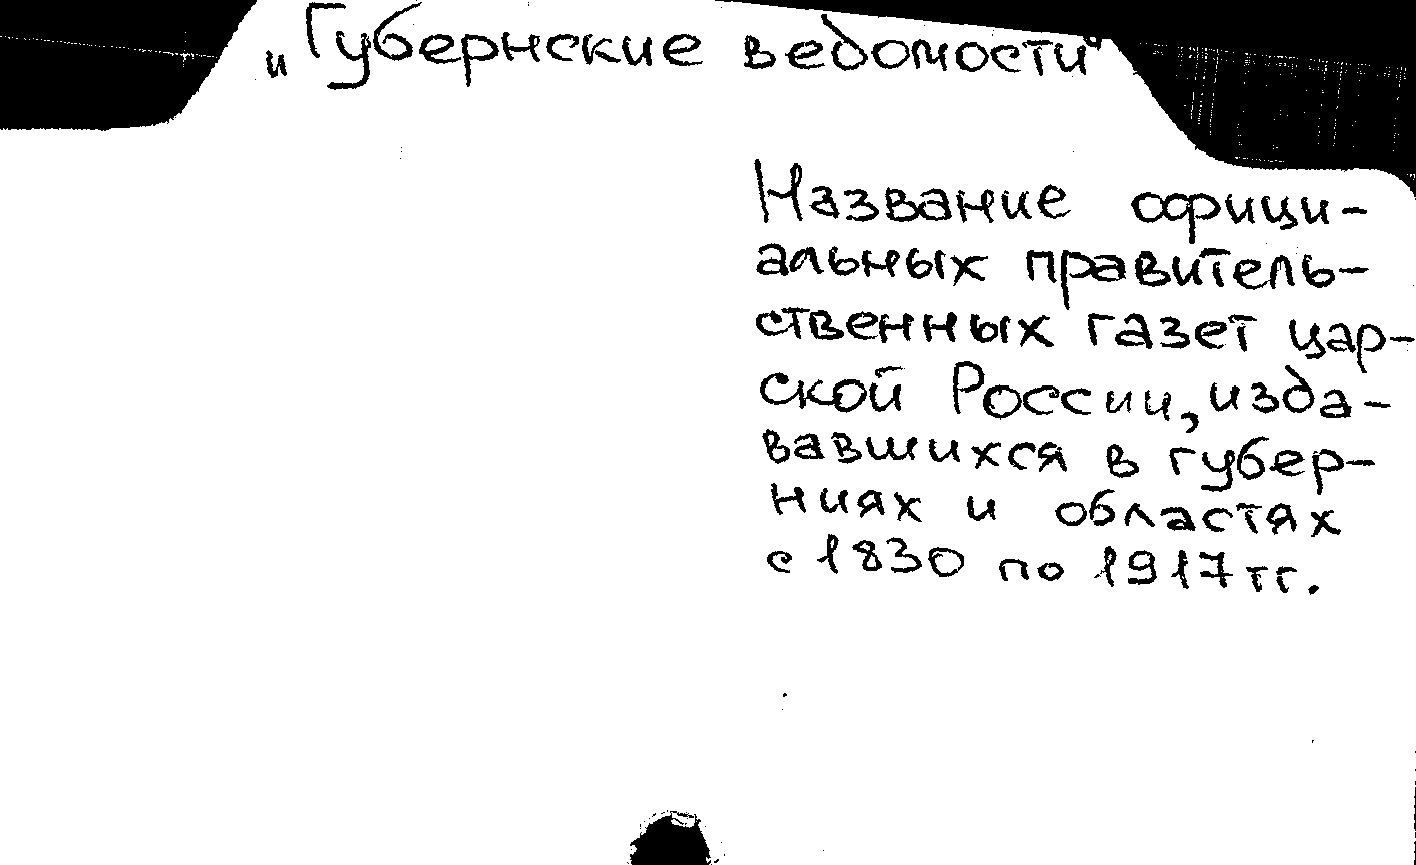 „Губернские ведомости“
Название офици-
альных правитель-
ственных газет цар-
ской России, изда-
вавшихся в губер-
ниях и областях
с 1830 по 1917 гг.